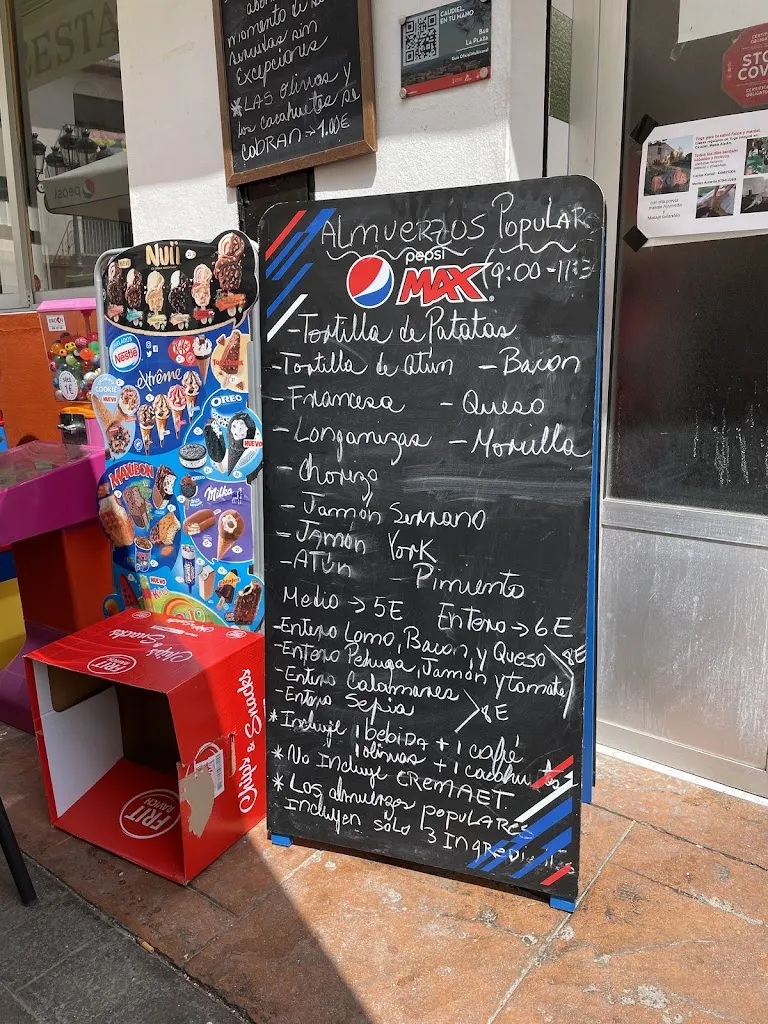 momento de
servirlas sin
Excepciones
*LAS olivas y
los cacahuetes se
cobran → 1.00E
CAUDIEL,
EN TU MANO
BAR
LA PLAZA
STO
COV
Yoga para tu salud física y mental.
ESTA
pepsi
ALMUERZOS POPULAR
pepsi
MAX
(9:00-11:3
-Tortilla de Patatas
-Tortilla de atún -Bacon
-Francesa -Queso
-Longanizas -Morcilla
-Chorizo
-Jamón Serrano
-Jamón York
-ATÚN -Pimiento
Medio → 5E Entero → 6E
-Entero Lomo, Bacon, y Queso
-Entero Pechuga, Jamón y tomate
8E
-Entero Calamares
-Entero Sepia
8E
*Incluye 1 bebida + 1 café
1 olivas + 1 cacahu
*No Incluye CREMAET.
*Los almuerzos populares
Incluyen sólo 3 Ingredi
Nuii
HELADOS
Nestlé
extrême
COOKIE
NUEVO
OREO
NUEVO
MAXIBON
Milka
NUEVO
1€
FRIT
RAVICH
Chips & Snacks
Chips & Snacks
FRIT
RAVICH